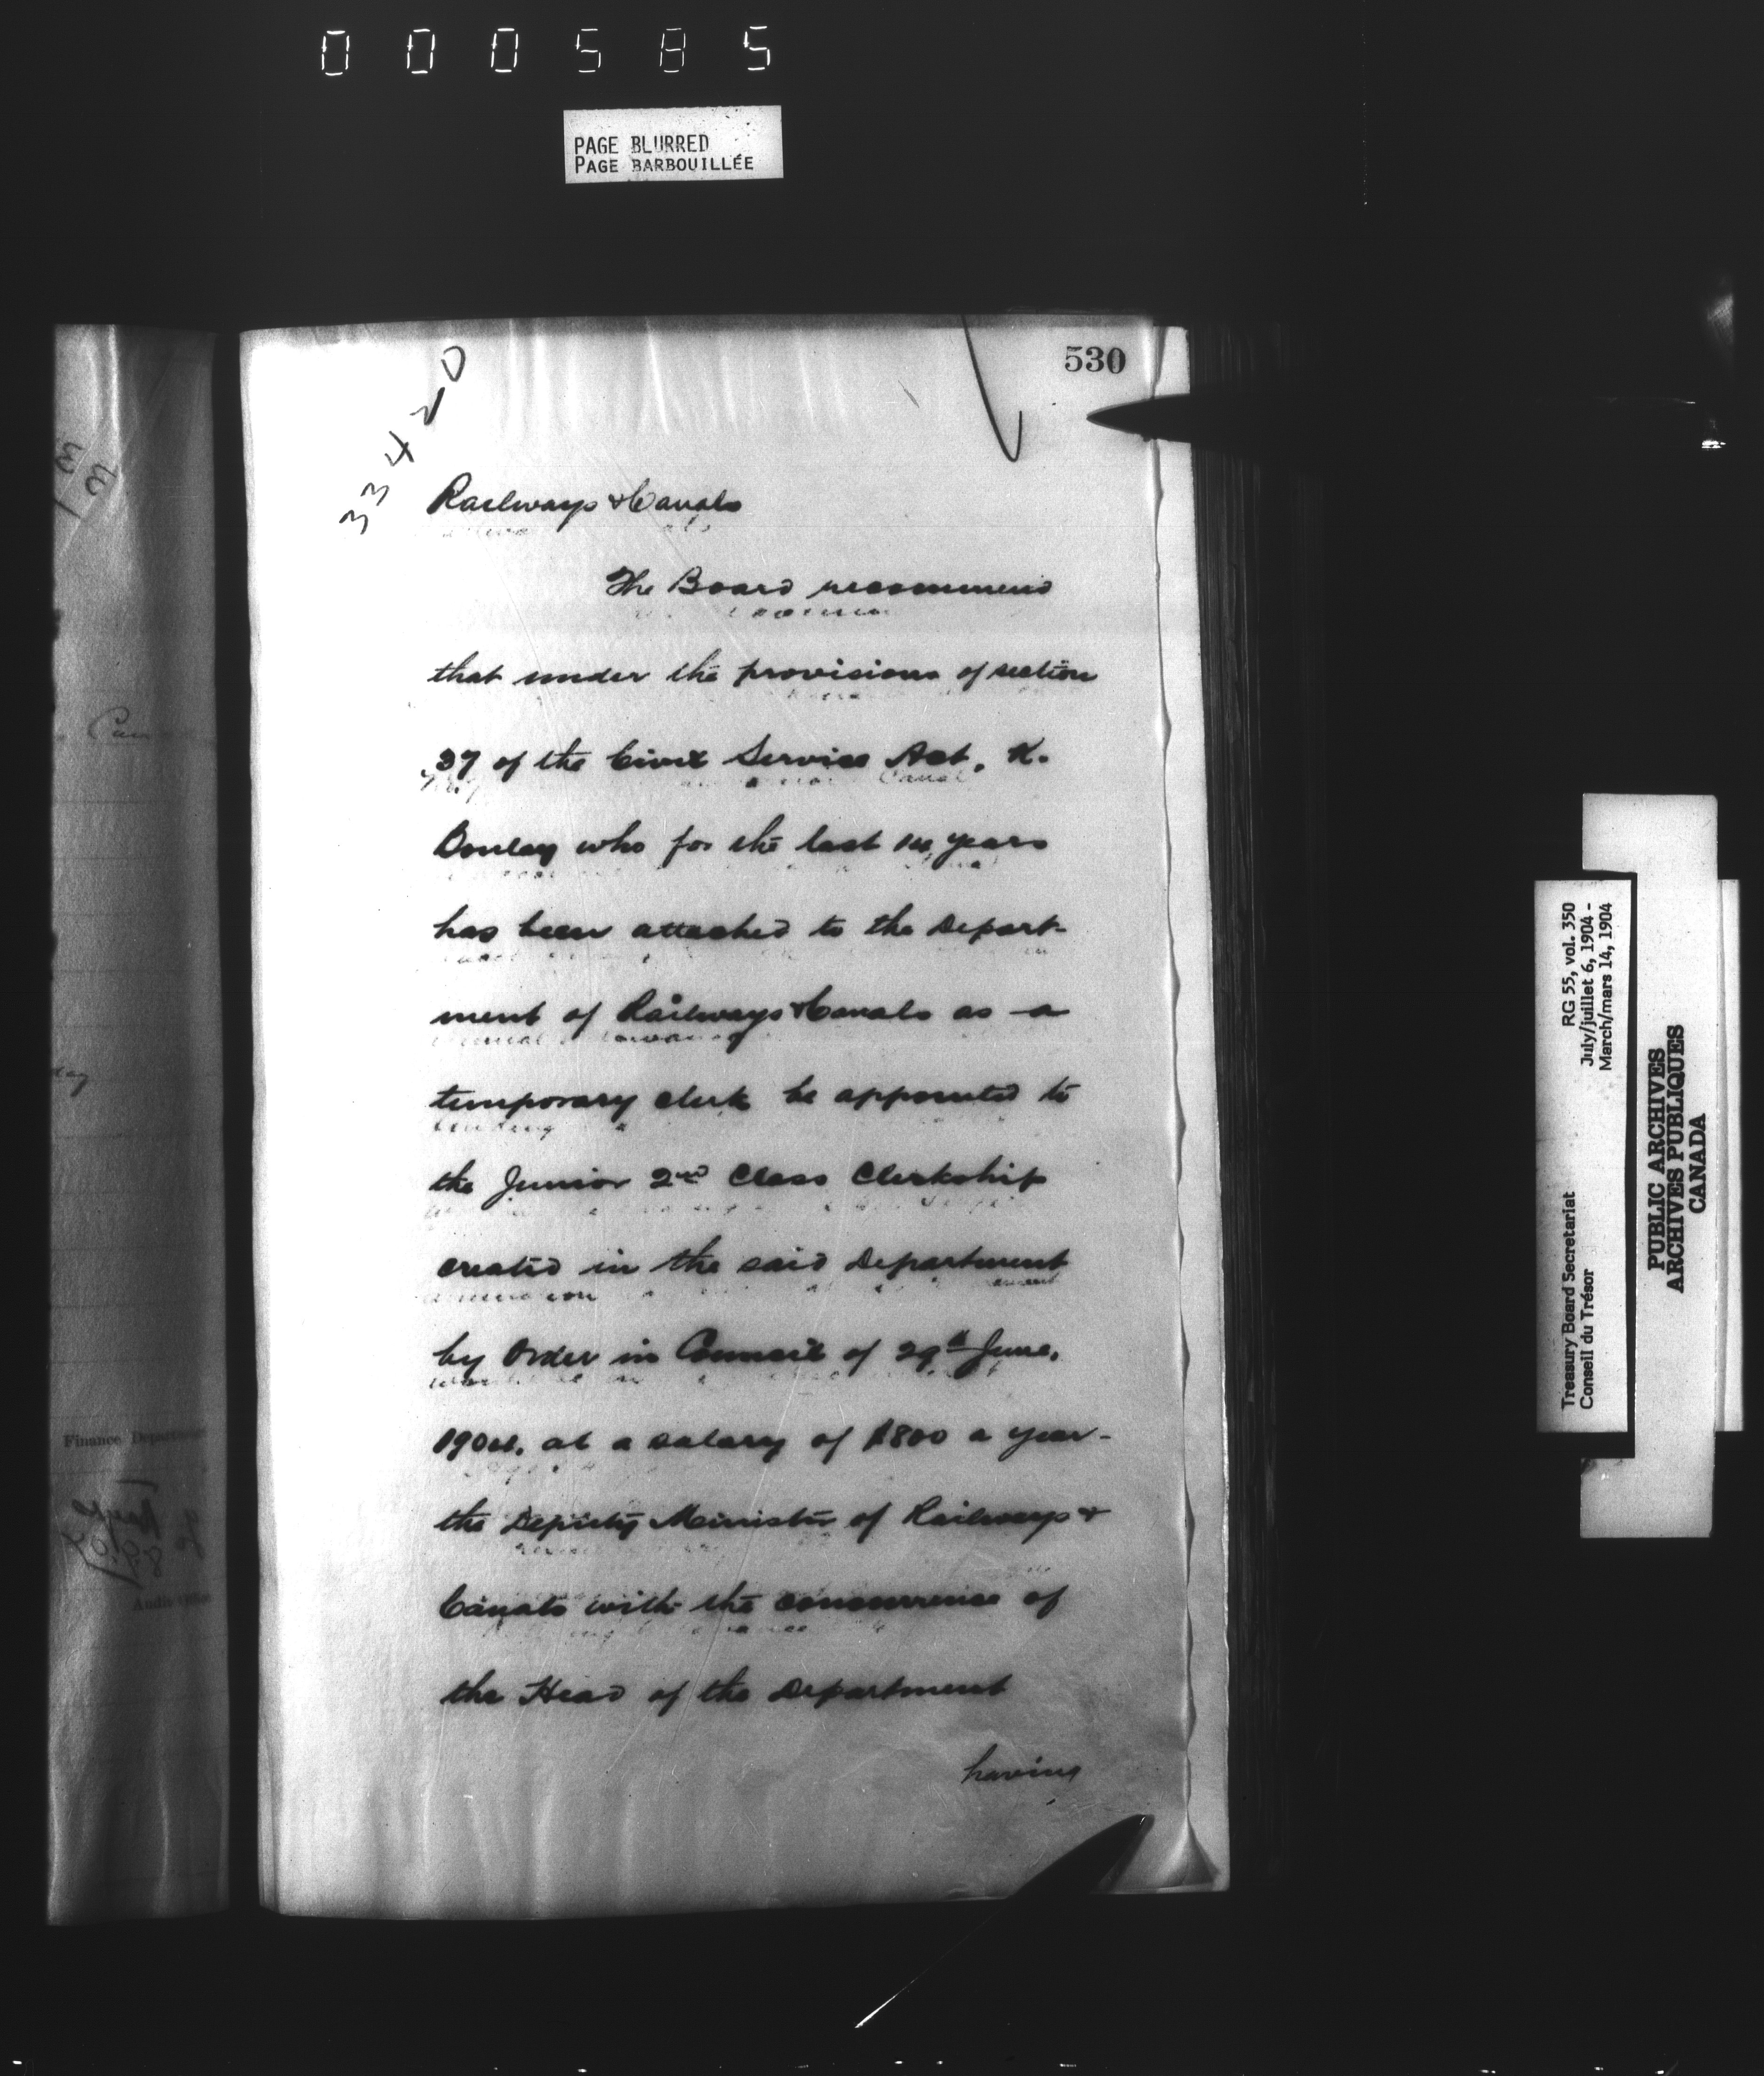 000585
PAGE BLURRED
PAGE BARBOUILLÉE
530
33420
Railways & Canals
The Board recommend
that under the provisions of section
37 of the Civil Service Act, K.
Donley who for the last 14 years
has been attached to the Depart-
ment of Railways & Canals as a
temporary clerk be appointed to
the Junior 2nd Class Clerkship
created in the said Department
by Order in Council of 29th June,
1904, at a salary of $800 a year -
the Deputy Minister of Railways &
Canals with the concurrence of
the Head of the Department
having
Finance Department
Audit Office
Treasury Board Secretariat RG 55, vol. 350
Conseil du Trésor July/juillet 6, 1904 -
March/mars 14, 1904
PUBLIC ARCHIVES
ARCHIVES PUBLIQUES
CANADA